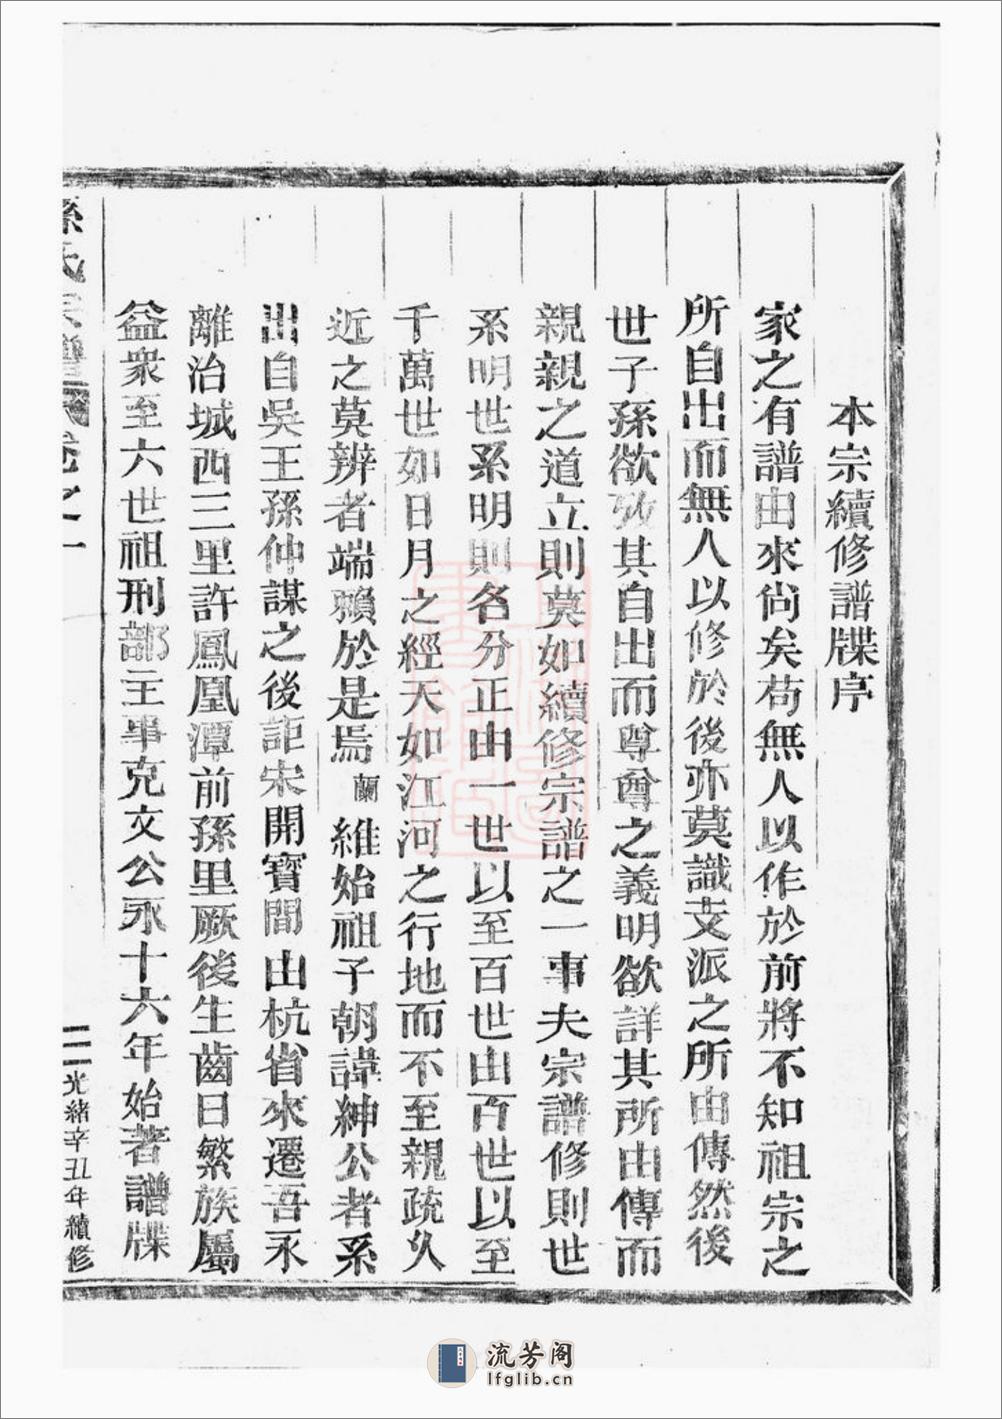 本宗續修譜牒序
家之有譜由來尙矣苟無人以作於前將不知祖宗之
所自出而無人以修於後亦莫識支派之所由傳然後
世子孫欲攷其自出而尊尊之義明欲詳其所由傳而
親親之道立則莫如續修宗譜之一事夫宗譜修則世
系明世系明則名分正由一世以至百世由百世以至
千萬世如日月之經天如江河之行地而不至親疏久
近之莫辨者端賴於是焉蘭維始祖子朝諱紳公者系
出自吳王孫仲謀之後詎宋開寶間由杭省來遷吾永
離治城西三里許鳳凰潭前孫里厥後生齒日繁族屬
益衆至六世祖刑部主事克文公永十六年始著譜牒
孫氏宗譜 卷之一
二 光緒辛丑年續修
流芳阁
lfglib.cn